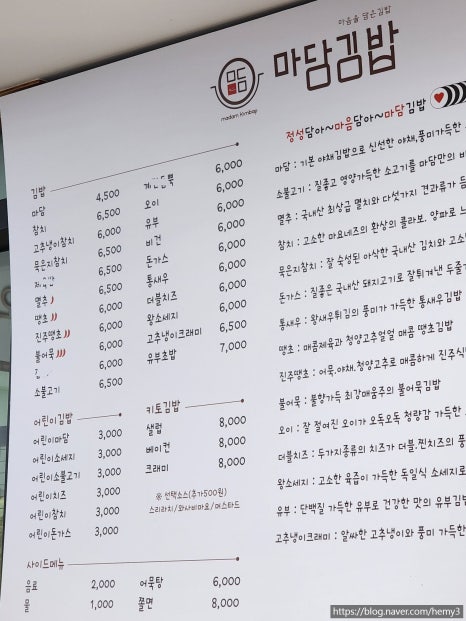 마음을 담은김밥
마담김밥
madam kimbap
정성담아~마음담아~마담김밥
김밥
마담 4,500
참치 6,500
고추냉이참치 6,000
묵은지참치 6,500
6,500
멸추 6,000
땡초 6,000
진주땡초 6,000
불어묵 6,000
6,000
소불고기 6,500
6,000
오이 6,000
유부 6,000
비건 6,000
돈가스 6,000
통새우 6,000
더블치즈 6,000
왕소세지 6,000
고추냉이크래미 6,500
유부초밥 7,000
어린이김밥
어린이마담 3,000
어린이소세지 3,000
어린이소불고기 3,000
어린이치즈 3,000
어린이참치 3,000
어린이돈가스 3,000
키토김밥
샐럽 8,000
베이컨 8,000
크래미 8,000
※ 선택소스(추가500원)
스리라차/와사비마요/머스타드
사이드메뉴
음료 2,000
물 1,000
어묵탕 6,000
쫄면 8,000
마담 : 기본 야채김밥으로 신선한 야채,풍미가득한
소불고기 : 질좋고 영양가득한 소고기를 마담만의
멸추 : 국내산 최상급 멸치와 다섯가지 견과류가
참치 : 고소한 마요네즈의 환상의 콜라보. 양파로
묵은지참치 : 잘 숙성된 아삭한 국내산 김치와
돈가스 : 질좋은 국내산 돼지고기로 잘튀겨낸
통새우 : 왕새우튀김의 풍미가 가득한 통새우김밥
땡초 : 매콤제육과 청양고추얼얼 매콤 땡초김밥
진주땡초 : 어묵.야채.청양고추로 매콤하게
불어묵 : 불향가득 최강매움주의 불어묵김밥
오이 : 잘 절여진 오이가 오독오독 청량감 가득한
더블치즈 : 두가지종류의 치즈가 더블.찐치즈의
왕소세지 : 고소한 육즙이 가득한 독일식 소세지로
유부 : 단백질 가득한 유부로 건강한 맛의 유부김밥
고추냉이크래미 : 알싸한 고추냉이와 풍미 가득한
https://blog.naver.com/hemy3